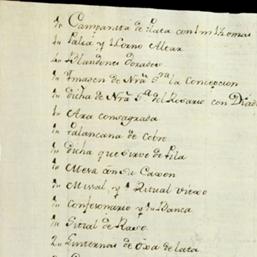 1o Campanita de Plata con
1o Palia y Horno Altar
4o Blandones Dorados
1o Ymagen de Nrã Srã la Concepcion
1o dicha de Nrã Srã del Rosario con
1o Ara consagrada
1o Palancana de Cobre
1o dicha que sirve de Pila
1o Mesa con su Caxon
1o Missal, y 1 Ritual viexo
1o Confesionario y Banca
1o Sitial de Raso
2o Linternas de Oxa de lata